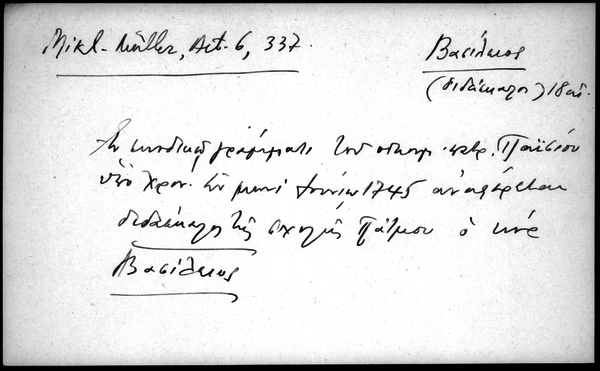 Mikl-Müller, Act. 6, 337.
Βασίλειος
(διδάσκαλος) 18 αἰ.
Ἐν συνοδικῷ γράμματι τοῦ οἰκουμ. πατρ. Παϊσίου
ὑπὸ χρον. τὸν μῆνα Ἰούνιον 1745 ἀναφέρεται
διδάσκαλος τῆς σχολῆς Πάτμου ὁ κύρ
Βασίλειος